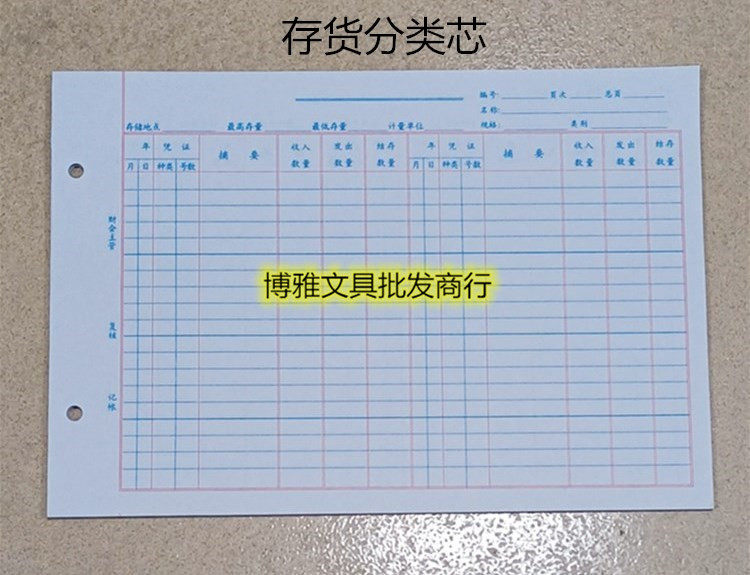 存货分类芯
编号: 页次 总页
名称:
存储地点 最高存量 最低存量 计量单位 规格: 类别
年 凭 证 摘 要 收入 发出 结存 年 凭 证 摘 要 收入 发出 结存
月 日 种类 号数 数量 数量 数量 月 日 种类 号数 数量 数量 数量
财会主管
博雅文具批发商行
复核
记帐